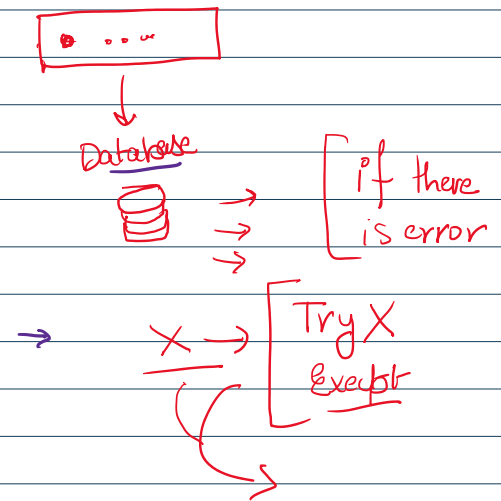 Database
if there
is error
X
Try X
Except